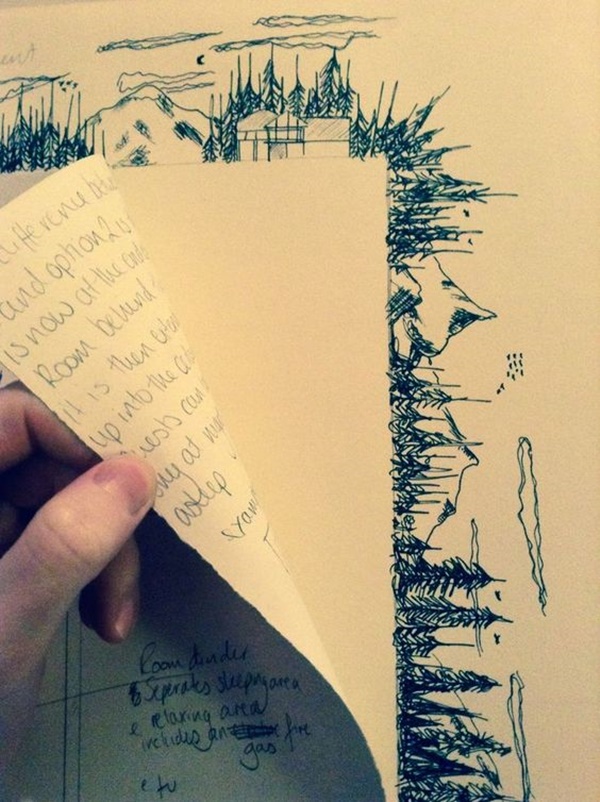 difference
and option 2 is
is now at the
Room behind
it is then
up into the
guests can
at
asleep
Room divider
Seperates sleeping area
relaxing area
includes an fire
gas